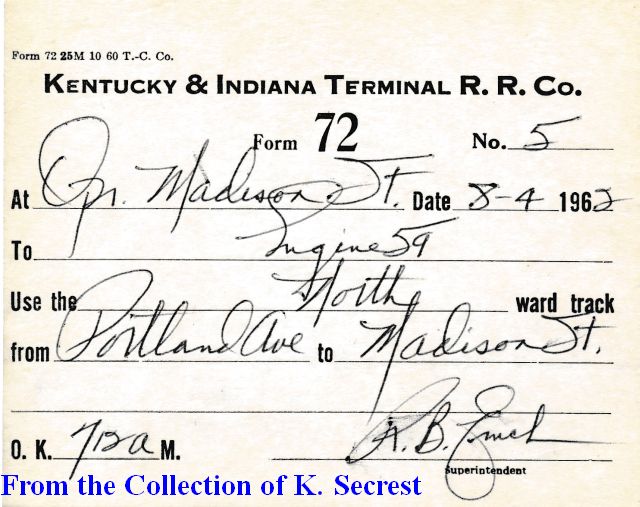 Form 72 25M 10 60 T.-C. Co.
KENTUCKY & INDIANA TERMINAL R. R. CO.
Form 72 No. 5
At Opr. Madison St. Date 8-4 1962
To Engine 59
Use the North ward track
from Portland Ave to Madison St.
O. K. 712 a M. R. B.
Superintendent
From the Collection of K. Secrest